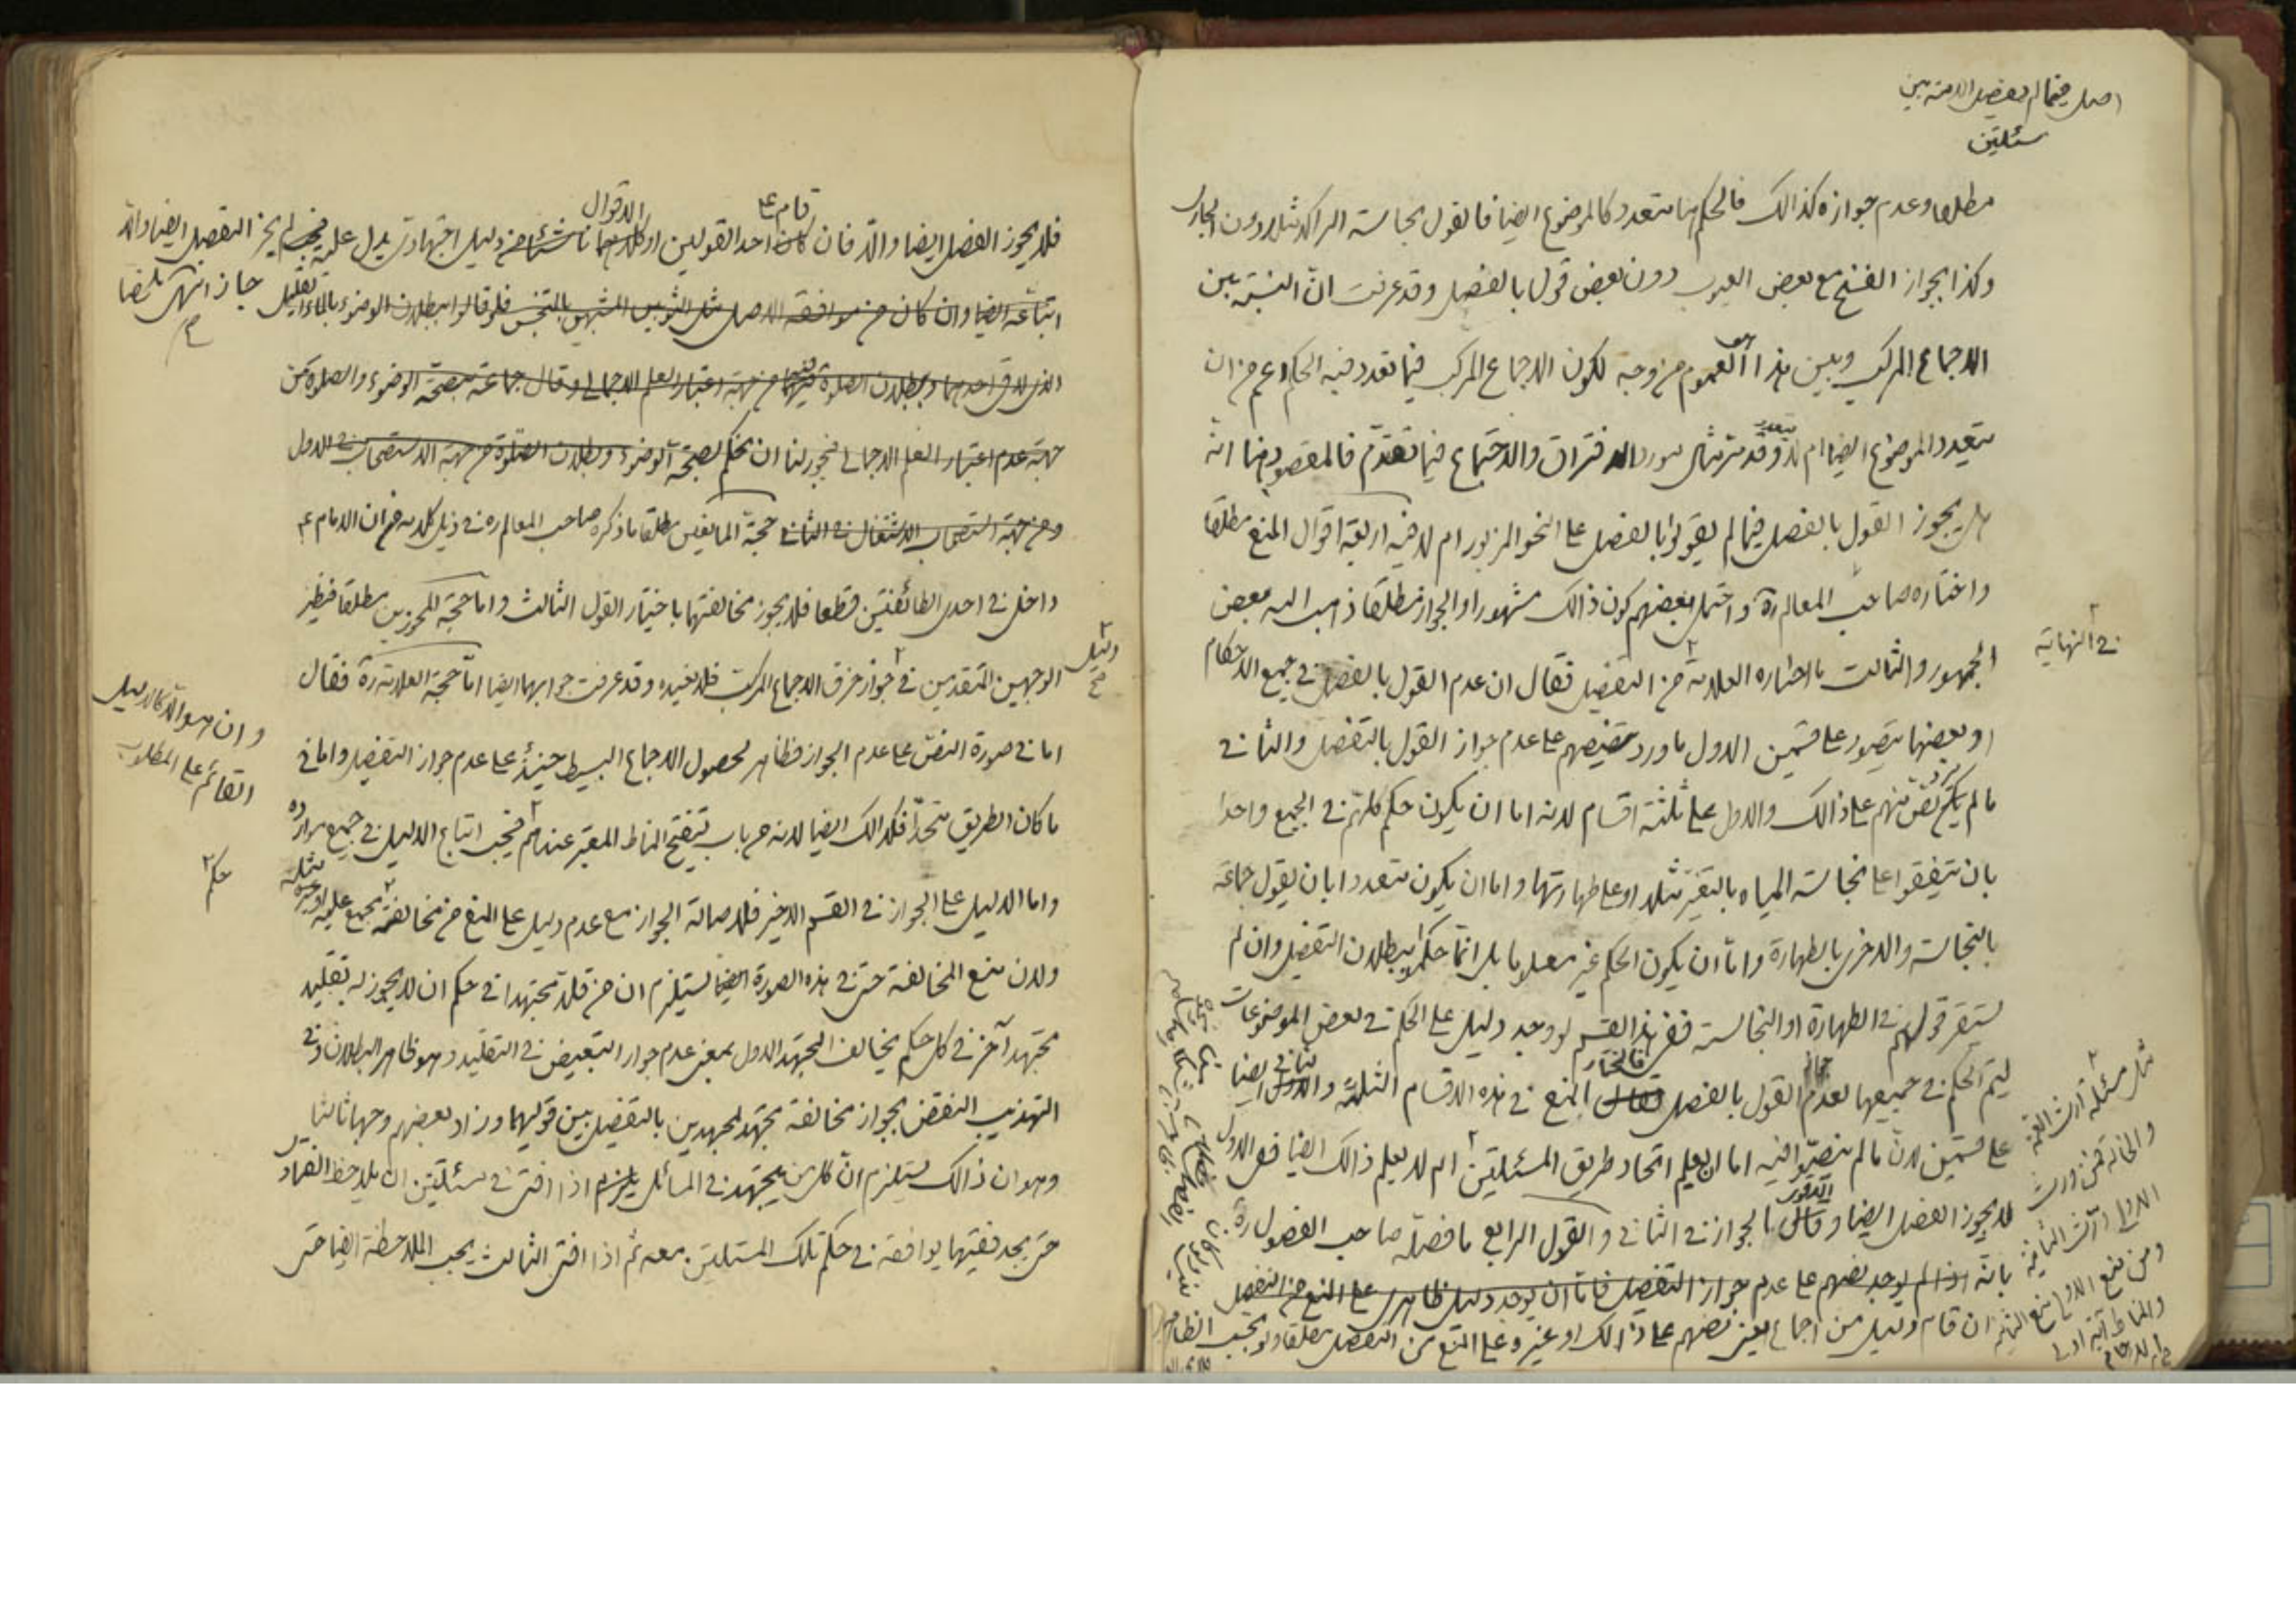 اصل فيما لم يفصل الامة بين
مسئلتين
مطلقا وعدم جوازه كذالك فالحكم هنا متعدد كالموضوع ايضا فالقول بنجاسة الراكد مثلا دون الجارى
وكذا بجواز الفسخ مع بعض العيوب دون بعض قول بالفصل وقد عرفت انّ النسبة بين
الاجماع المركب وبين هذا العموم من وجه لكون الاجماع المركب فيما تعدد فيه الحكم اعم من ان
يتعدد الموضوع ايضا ام لا وقد مرّ مثال مورد الافتراق والاجتماع فيما تقدّم فالمقصود هنا انّه
هل يجوز القول بالفصل فيما لم يقولوا بالفصل على النحو المزبور ام لا فيه اربعة اقوال المنع مطلقا
واختاره صاحب المعالم ره واحتمل بعضهم كون ذالك مشهورا والجواز مطلقا ذهب اليه بعض
الجمهور والثالث ما اختاره العلامة من التفصيل فقال ان عدم القول بالفصل فى جميع الاحكام
فى النهاية
او بعضها يتصور على قسمين الاول ما ورد تنصيصهم على عدم جواز القول بالتفصيل والثانى
ما لم يكن نصّ منهم على ذالك والاول على ثلثة اقسام لانه اما ان يكون حكم كلّهم فى الجميع واحدا
بان يتفقوا على نجاسة المياه بالتغيّر مثلا او على طهارتها واما ان يكون متعددا بان يقول جماعة
بالنجاسة والاخرى بالطهارة وامّا ان يكون الحكم غير معلوما بل انّما حكموا ببطلان التفصيل وان لم
يستقر قولهم فى الطهارة او النجاسة ففى هذا القسم لو وجد دليل على الحكم فى بعض الموضوعات
ليتم الحكم فى جميعها لعدم جواز القول بالفصل فاختار المنع فى هذه الاقسام الثلثة والثانى ايضا
على قسمين لانّ ما لم ينصّوا فيه اما ان يعلم اتحاد طريق المسئلتين ام لا يعلم ذالك ايضا ففى الاول
لا يجوز الفصل ايضا وقال بالجواز فى الثانى والقول الرابع ما فصّله صاحب الفصول ره
بانّه اذا لم يوجد نصهم على عدم جواز التفصيل فامّا ان يوجد دليل ظاهرى على المنع من التفصيل
ان قام دليل من اجماع يعنى نصهم على ذالك او غيره على المنع من التفصيل مطلقا ولو بحسب الظاهر
مثل مسئلة ارث العمة
والخالة فمن ورث
الاولى ورّث الثانية
ومن منع الاولى منع الثانية
والمناط آية اولى
الارحام
قام ع الاقوال
فلا يجوز الفصل ايضا والّا فان كان احد القولين او كلاهما ناشئا من دليل اجتهادى يدل عليه فيجب لم يجز التفصيل ايضا والّا
جاز انتهى ملخصا
اتباعه ايضا وان كان من موافقة الاصل مثل الثوبين المشتبهين بالنجس فلو قالوا ببطلان الوضوء بالماء القليل
الذى لاقى احدهما وببطلان الصلوة فيهما من جهة اعتبار العلم الاجمالى وقال جماعة بصحة الوضوء والصلوة من
جهة عدم اعتبار العلم الاجمالى فيجوز لنا ان نحكم بصحة الوضوء وببطلان الصلوة من جهة الاستصحاب فى الاول
ومن جهة استصحاب الاشتغال فى الثانى حجّة المانعين مطلقا ما ذكره صاحب المعالم ره فى ذيل كلامه من ان الامام ع
داخل فى احدى الطائفتين قطعا فلا يجوز مخالفتهما باختيار القول الثالث واما حجّة المجوزين مطلقا فنظير
الوجهين المتقدمين فى جواز خرق الاجماع المركب فلا نعيده وقد عرفت جوابهما ايضا امّا حجّة العلامة ره فقال
دليل
اما فى صورة النصّ على عدم الجواز فظاهر لحصول الاجماع البسيط حينئذ على عدم جواز التفصيل واما فى
وان هو الّا كالدليل
القائم على المطلوب
ما كان الطريق متحدّا فكذالك ايضا لانه من باب تنقيح المناط المعتبر عندهم فيجب اتباع الدليل فى جميع موارده
واما الدليل على الجواز فى القسم الاخير فلاصالة الجواز مع عدم دليل على المنع من مخالفة مجمع عليه
حكم
ولان منع المخالفة حتى فى هذه الصورة ايضا يستلزم ان من قلّد مجتهدا فى حكم ان لا يجوز له تقليد
مجتهد آخر فى كل حكم يخالف المجتهد الاول بمعنى عدم جواز التبعيض فى التقليد وهو ظاهر البطلان وفى
التهذيب النقض بجواز مخالفة مجتهد لمجتهدين بالتفصيل بين قوليهما وزاد بعضهم وجها ثالثا
وهو ان ذالك يستلزم انّ كل من يجتهد فى المسائل يلزم اذا افتى فى مسئلتين ان يلاحظ الفتاوى
حتى يجد فقيها يوافقه فى حكم تلك المسئلتين معه ثم اذا افتى الثالث يجب الملاحظة ايضا حتى